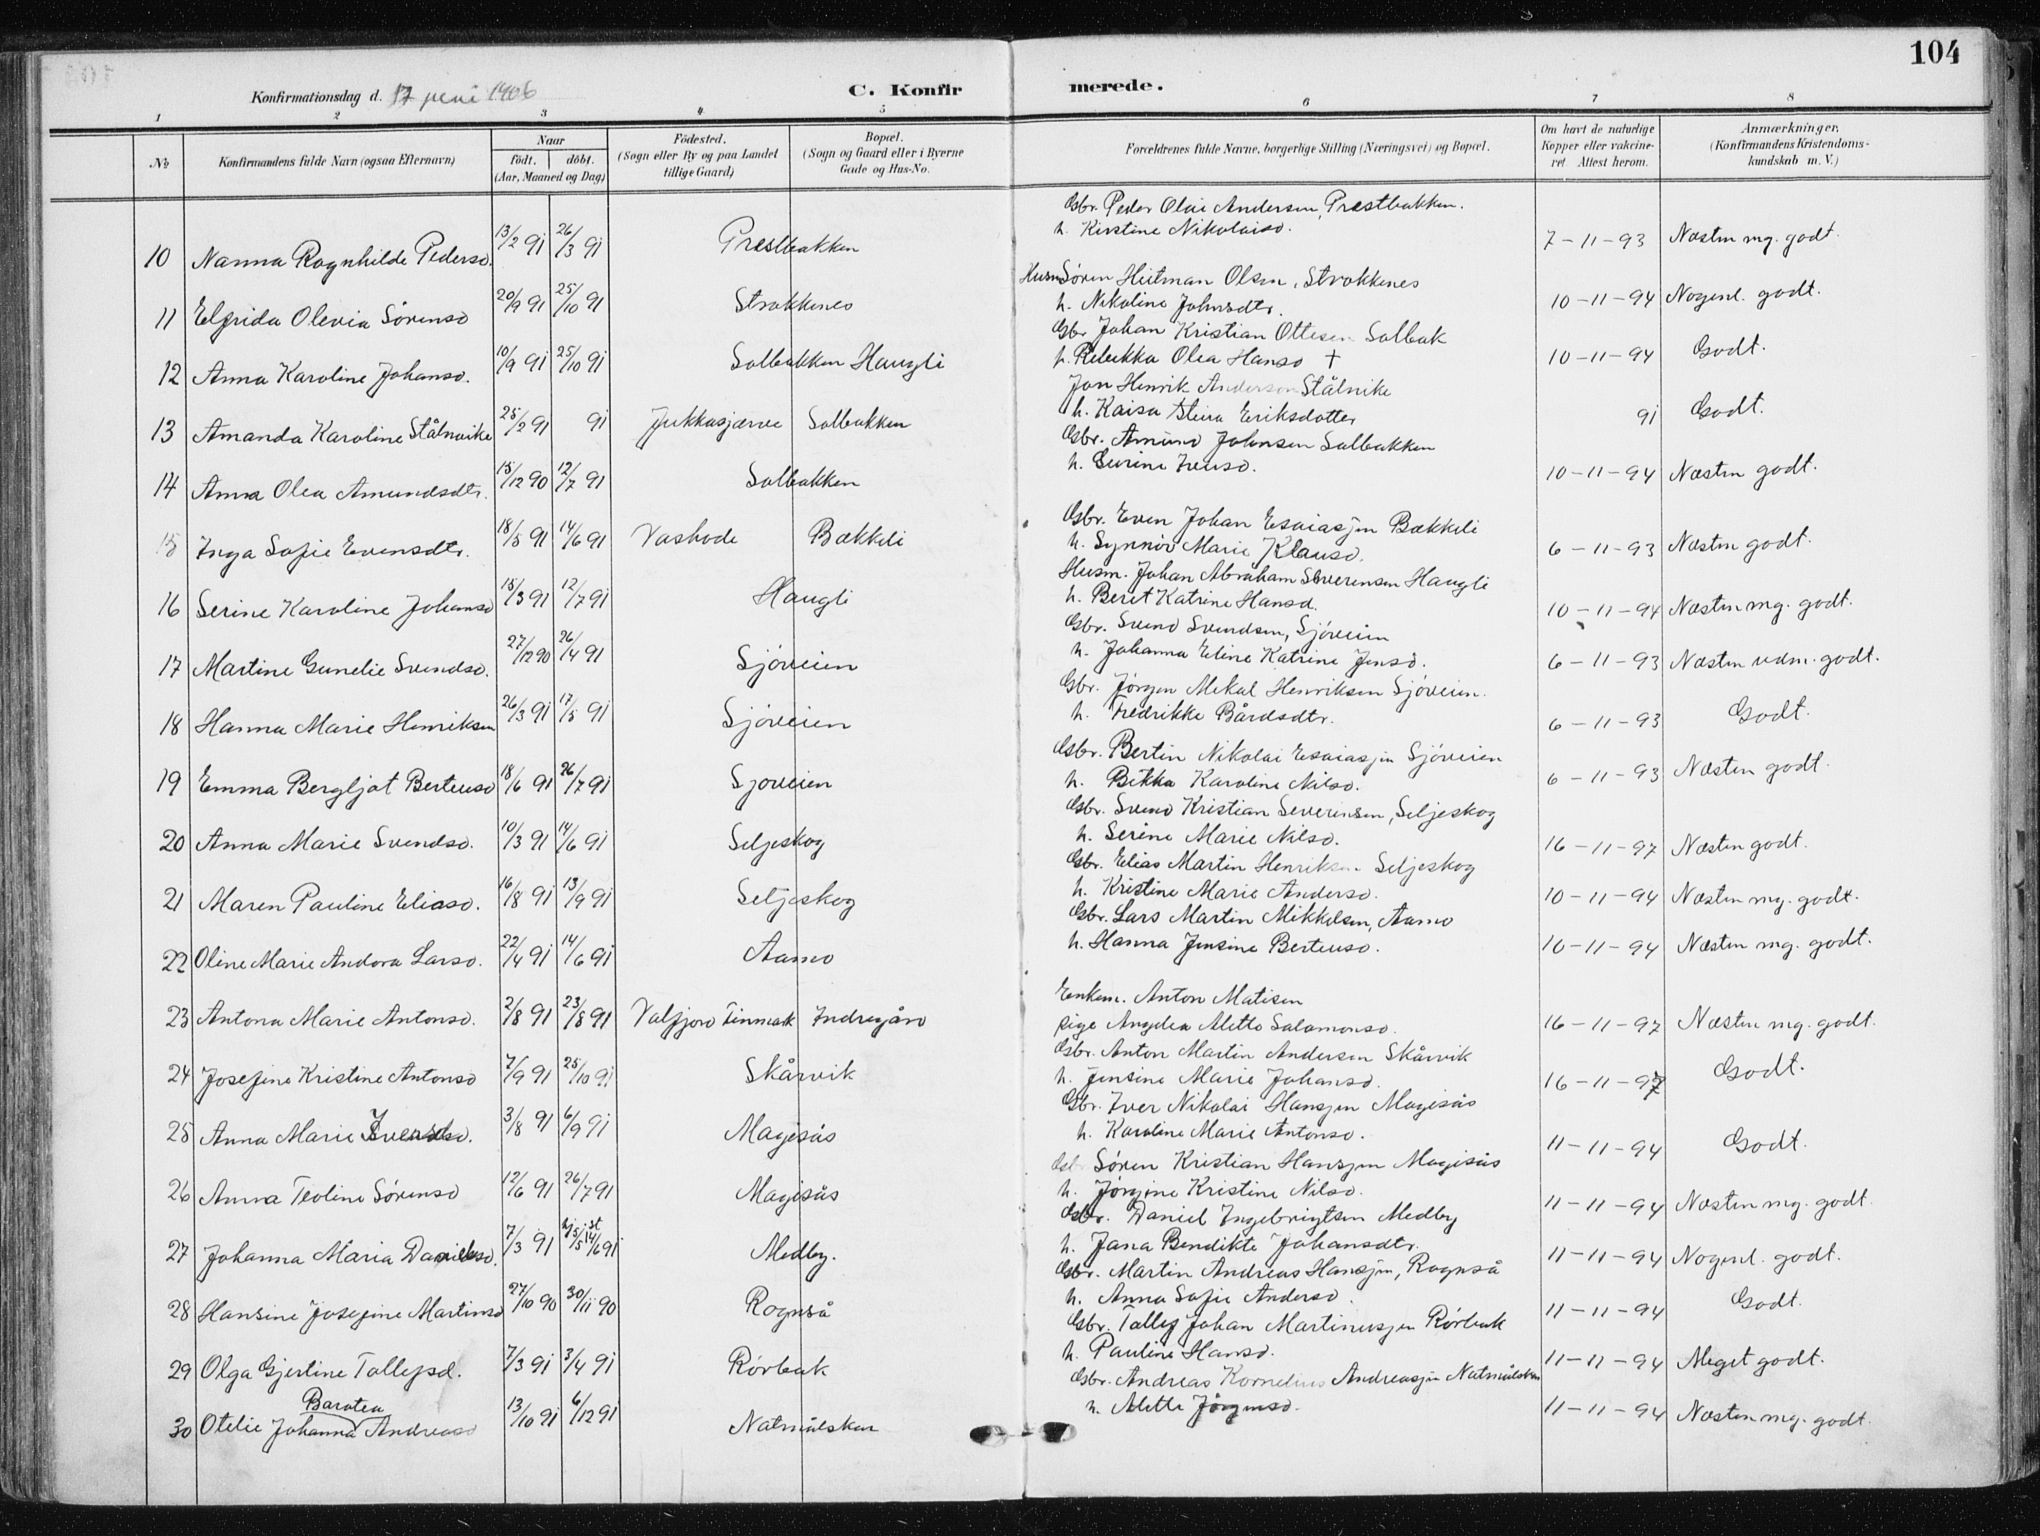 104
Konfirmationsdag d. 17 juni 1906
C. Konfirmerede.
1 2 3 4 5 6 7 8
No
Konfirmandens fulde Navn (ogsaa Efternavn)
Naar
födt. döbt.
(Aar, Maaned og Dag)
Födested.
(Sogn eller By og paa Landet
tillige Gaard)
Bopæl.
(Sogn og Gaard eller i Byerne
Gade og Hus-No.
Forældrenes fulde Navne, borgerlige Stilling (Næringsvei) og Bopæl.
Om havt de naturlige
Kopper eller vakcine-
ret. Attest herom.
Anmærkninger.
(Konfirmandens Kristendoms-
kundskab m. V.)
Gbr. Peder Olai Andersen, Præstbakken.
h. Kirstine Nikolaisd.
10 Nanna Ragnhilde Pedersd. 13/2 91 26/3 91 Præstbakken 7-11-93 Næsten mg. godt.
Husm Søren Hiitman Olsen, Strokkenes
h. Nikoline Johnsdtr.
11 Elfrida Olevia Sörensd 20/9 91 25/10 91 Strokkenes 10-11-94 Nogenl. godt.
Gbr Johan Kristian Ottesen Solbak
h. Rebekka Olea Hansd †
12 Anna Karoline Johansd. 10/9 91 25/10 91 Solbakken Haugli 10-11-94 Godt.
Jon Henrik Anderson Stålnike
h. Kaisa Eriksdotter
13 Amanda Karoline Stålnacke 25/2 91 91 Jukkasjærve Solbakken 91 Godt.
Gbr. Amund Johnsen Solbakken
h. Sivrine Iversd.
14 Anna Olea Amundsdtr. 15/12 90 12/7 91 Solbakken 10-11-94 Næsten godt.
Gbr. Even Johan Esaiasjen Bækkeli
h. Synnöv Marie Klausd.
15 Inga Sofie Evensdtr. 18/5 91 14/6 91 Vashode Bækkeli 6-11-93 Næsten godt.
Husm. Johan Abraham Severinsen Haugli
h. Beret Katrine Hansd.
16 Serine Karoline Johansd 15/3 91 12/7 91 Haugli 10-11-94 Næsten mg. godt.
Gbr. Svend Svendsen, Sjöveien
h. Johanna Eline Katrine Jensd.
17 Martine Gunelie Svendsd. 27/12 90 26/4 91 Sjöveien 6-11-93 Næsten udm. godt.
Gbr. Jörgen Mikal Henriksen Sjöveien.
h. Fredrikke Bårdsdtr.
18 Hanna Marie Henriksen 26/3 91 17/5 91 Sjöveien 6-11-93 Godt.
Gbr. Bertin Nikolai Esaiasjen Sjöveien
h. Bikka Karoline Nilsd.
19 Emma Bergljot Berteusd 18/6 91 26/7 91 Sjoveien 6-11-93 Næsten godt.
Gbr. Svend Kristian Severinsen, Seljeskog
h. Serine Marie Nilsd.
20 Anna Marie Svendsd. 10/3 91 14/6 91 Seljeskog 16-11-97 Næsten godt.
Gbr. Elias Martin Henriksen Seljeskog
h. Kristine Marie Andersd.
21 Maren Pauline Eliasd. 16/8 91 13/9 91 Seljeskog 10-11-94 Næsten mg. godt.
Gbr. Lars Martin Mikkelsen, Aamo
h. Hanna Jensine Berteusd.
22 Oline Marie Andora Larsd. 22/4 91 14/6 91 Aamo 10-11-94 Næsten mg. godt.
Enkem. Anton Matisen
pige Angdea Alette Salamonsd.
23 Antona Marie Antonsd. 2/8 91 23/8 91 Valfjord Finmark Indregård 16-11-97 Næsten mg. godt.
Gbr. Anton Martin Andersen Skårvik
h. Jensine Marie Johansd.
24 Josefine Kristine Antonsd 7/9 91 25/10 91 Skårvik 16-11-97 Godt.
Gbr. Iver Nikolai Hansjen Magisås
h. Karoline Marie Antonsd.
25 Anna Marie Iversd. 3/8 91 6/9 91 Magisås 11-11-94 Godt.
Gbr Søren Kristian Hansjen Magisås
h. Jörgine Kristine Nilsd.
26 Anna Teoline Sörensd 12/6 91 26/7 91 Magisås 11-11-94 Næsten mg. godt.
Gbr. Daniel Ingebrigtsen Medby
h. Jana Bendikte Johansdtr.
27 Johanna Maria Danielsd. 7/3 91 hj 5/5 st 14/6 91 Medby. 11-11-94 Nogenl. godt.
Gbr. Martin Andreas Hansjen, Rognså
h. Anna Sofie Andersd.
28 Hansine Josefine Martinsd 27/10 90 30/11 90 Rognså 11-11-94 Godt.
Gbr. Tallef Johan Martinusjen Rörbak
h. Pauline Hansd.
29 Olga Gjertine Tallefsd. 7/3 91 3/4 91 Rörbak 11-11-94 Meget godt.
Gbr. Andreas Kornelius Andreasjen Natmålsken
h. Alette Jörgensd.
Baratea
30 Otelie Johanna Andreasd 13/10 91 6/12 91 Natmålsken 11-11-94 Næsten mg. godt.